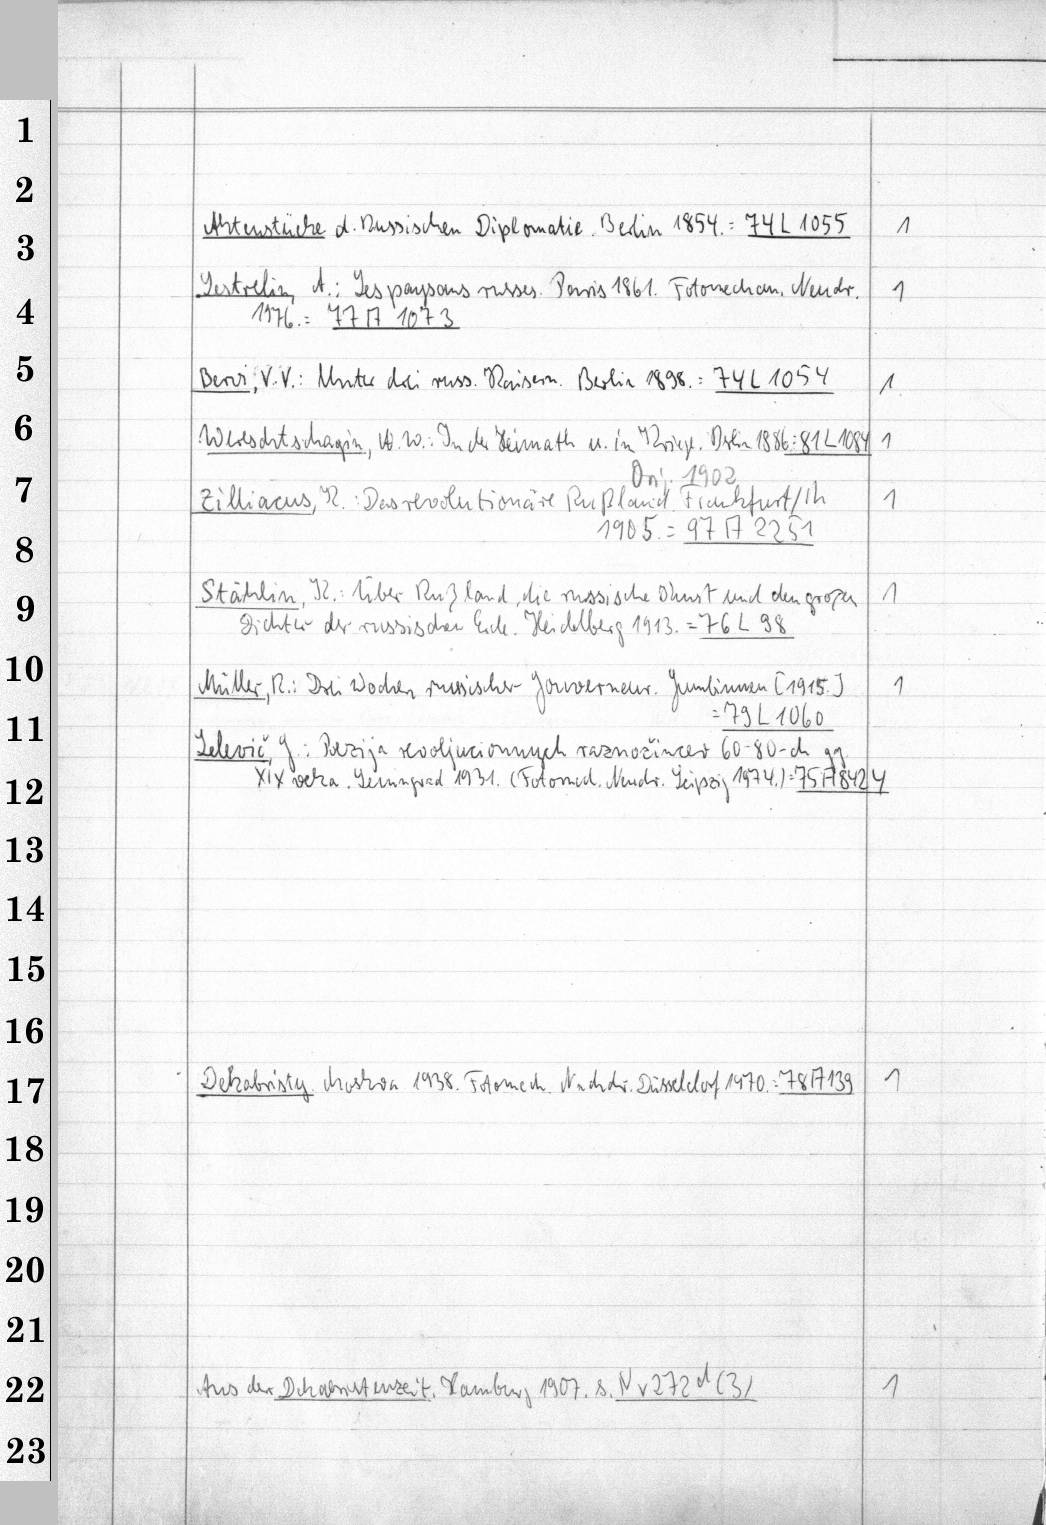 1
2
Aktenstücke d. Russischen Diplomatie. Berlin 1854. = 74 L 1055 1
3
Lestrelin, A.: Les paysans russes. Paris 1861. Fotomechan. Neudr. 1
4
1976. = 77 A 1073
5
Bervi, V. V.: Unter drei russ. Kaisern. Berlin 1898. = 74 L 1054 1
6
Wereschtschagin, W. W.: In der Heimath u. in Kriege. Berlin 1886. = 81 L 1084 1
Ori. 1902
7
Zilliacus, K.: Das revolutionäre Rußland. Frankfurt/M 1
1905. = 97 A 2251
8
9
Stählin, K.: Über Rußland, die russische Kunst und den großen 1
Dichter der russischen Erde. Heidelberg 1913. = 76 L 98
10
Müller, R.: Drei Wochen russischer Gouverneur. Gumbinnen [1915.] 1
= 79 L 1060
11
Lelevič, G.: Poezija revoljucionnych raznočincev 60-80-ch gg
12
XIX veka. Leningrad 1931. (Fotomech. Neudr. Leipzig 1974.) = 75 A 8424
13
14
15
16
17
Dekabristy. Moskva 1938. Fotomech. Nachdr. Düsseldorf 1970. = 78 A 139 1
18
19
20
21
22
Aus der Dekabristenzeit. Hamburg 1907. s. Nv 272 d (3) 1
23